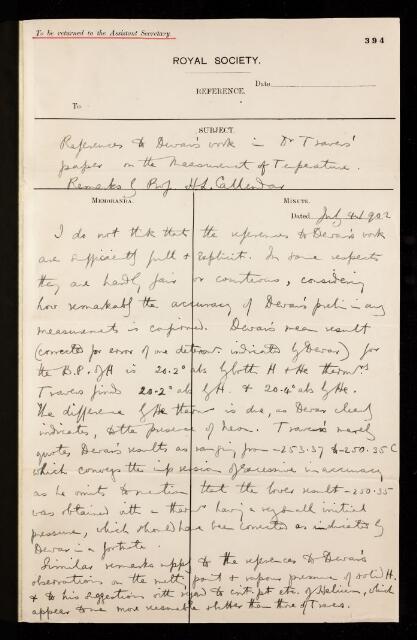 To be returned to the Assistant Secretary.
394
ROYAL SOCIETY.
Date
REFERENCE.
To
SUBJECT.
References to Dewar's work in Dr Travers'
paper on the Measurement of Temperature.
Remarks by Prof. H.L. Callendar
MEMORANDA.
MINUTE.
Dated July 1902
I do not think that the references to Dewar's work
are sufficiently full & explicit. In some respects
they are hardly fair or courteous, considering
how remarkably the accuracy of Dewar's prelimin-ary
measurements is confirmed. Dewar's mean result
(corrected for error of one determ. indicated by Dewar) for
the B.P. of H is 20.2° abs by both H & He therm^rs
Travers finds 20.2° abs by H. & 20.4° abs by He.
The difference by He therm is due, as Dewar clearly
indicates, to the presence of neon. Travers merely
quotes Dewar's results as ranging from -253.37 to -250.35 C
which conveys the impression of excessive inaccuracy
as he omits to mention that the lower result -250.35
was obtained with a therm having a very small initial
pressure, which should have been corrected as indicated by
Dewar in a footnote.
Similar remarks apply to the references to Dewar's
observations on the melting point & vapour pressure of solid H.
& to his suggestions with regard to crit. pt. etc. of Helium, which
appear to me more reasonable than those of Travers.